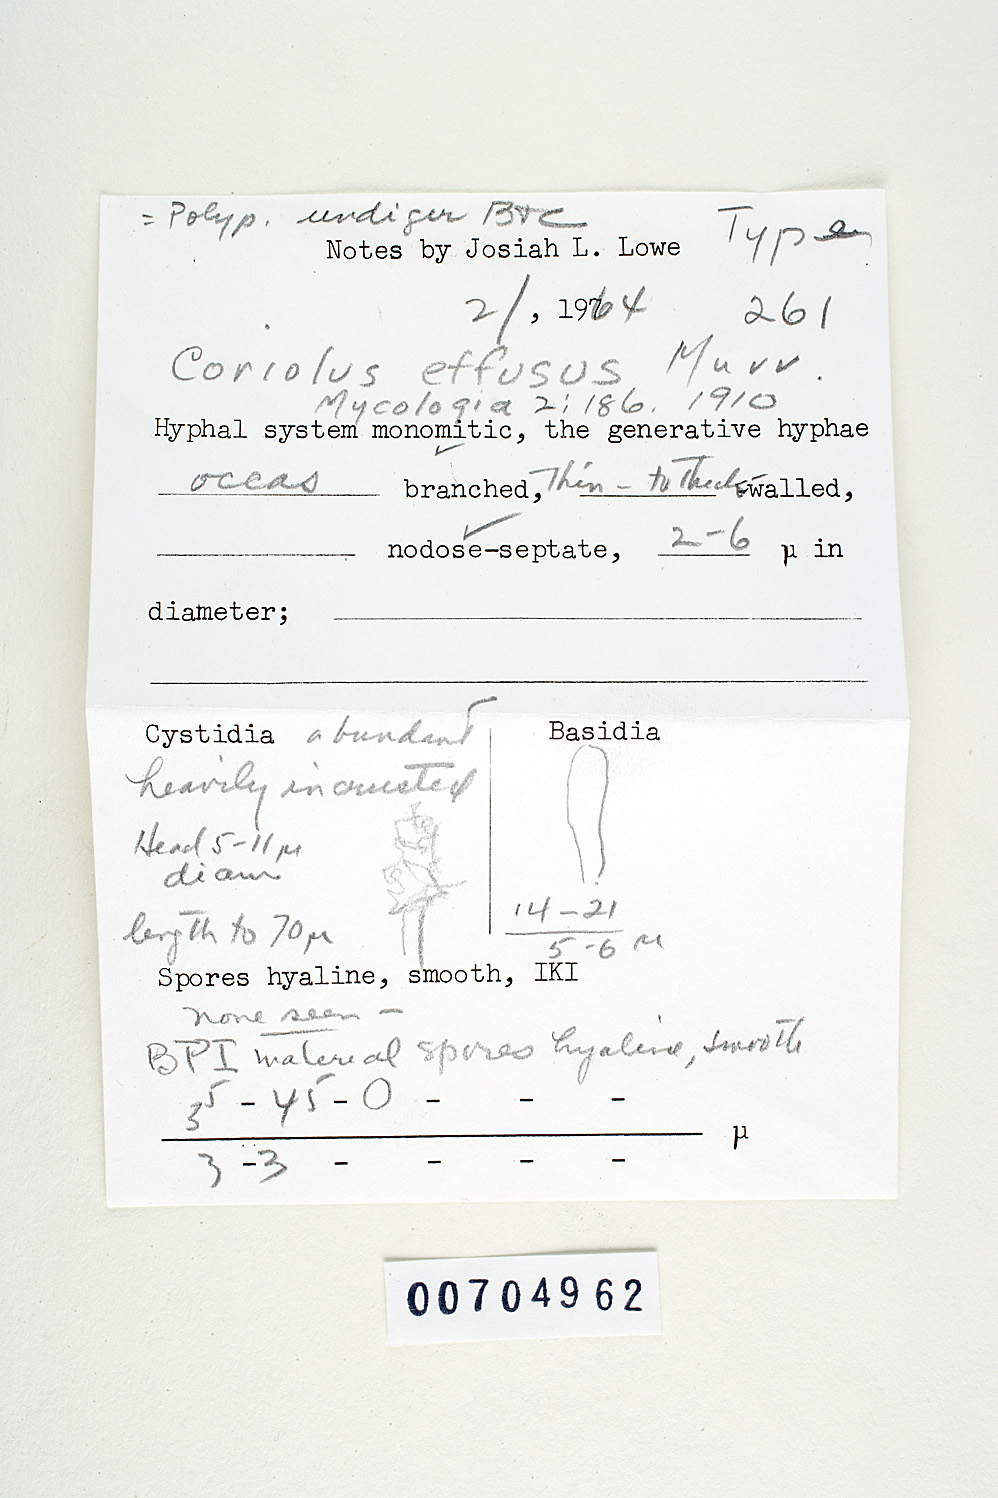 = Polyp. undiger B&C
Notes by Josiah L. Lowe Type
2/, 1964 261
Coriolus effusus Murr.
Mycologia 2: 186. 1910
Hyphal system monomitic, the generative hyphae
occas branched, Thin - to Thick-walled,
nodose-septate, 2-6 µ in
diameter;
Cystidia abundant
heavily incrusted
Head 5-11 µ
diam
length to 70 µ
Basidia
14-21
5-6 µ
Spores hyaline, smooth, IKI
none seen -
BPI material spores hyaline, smooth
3⁵ - 4⁵ - 0 - - -
3 - 3 - - - - µ
00704962